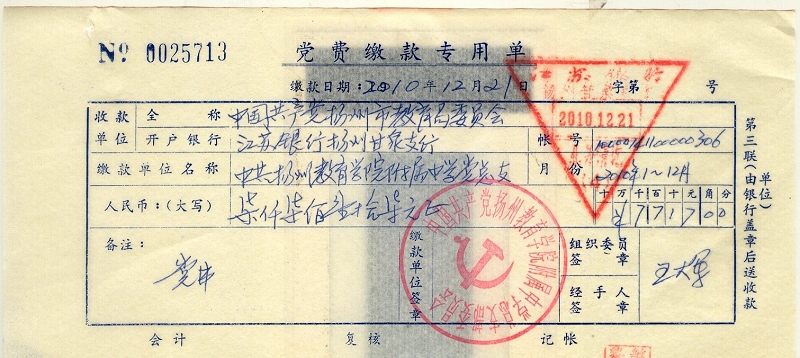 Nº 0025713 党费缴款专用单
缴款日期：2010年12月21日 字第 号
收款单位 全称 中国共产党扬州市教育局委员会
开户银行 江苏银行扬州甘泉支行 帐号
缴款单位名称 中共扬州教育学院附属中学党总支 月份 2010年1~12月
人民币：(大写) 柒仟柒佰壹拾柒元正 十万千百十元角分 ¥771700
备注：
党费
缴款单位签章
组织委员签章 王大军
经手人签章
会计 复核 记帐
第三联(由银行盖章后送收款单位)
2010.12.21
中国共产党扬州教育学院附属中学总支部委员会